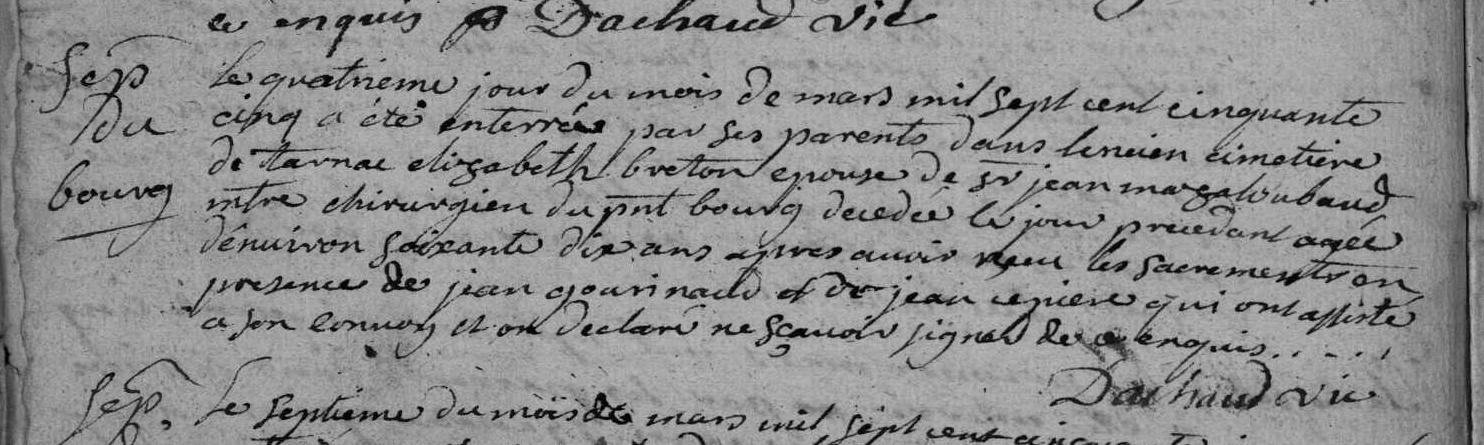 ce enquis Dachaud vic
Sep le quatrieme jour du mois de mars mil sept cent cinquante
du cinq a été enterrée par ses parents dans lencien cimetiere
de tarnac elizabeth breton epouse de sr jean mazaloubaud
bourg mtre chirurgien du pnt bourg decedée le jour precedant agée
dénuiron soixante dix ans apres auoir receu les sacrements en
presence de jean gourinaud et de jean cepiere qui ont assisté
a son conuoy et on declaré ne sçauoir signer de ce enquis.....
Dachaud vic
Sep. Le septieme du mois de mars mil sept cent